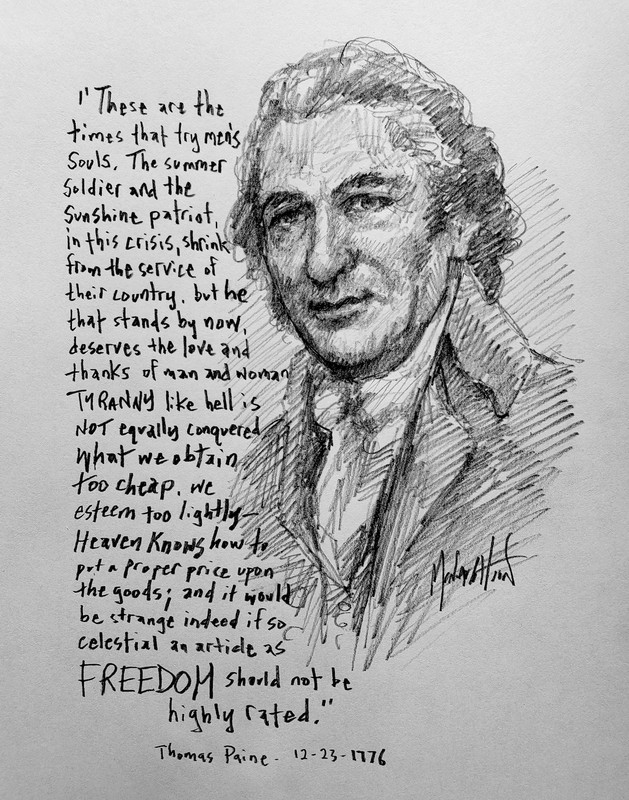 "These are the
times that try men's
Souls. The summer
Soldier and the
Sunshine patriot,
in this crisis, shrink
from the service of
their country, but he
that stands by now,
deserves the love and
thanks of man and woman
TYRANNY like hell is
NOT equally conquered
What we obtain
too cheap, we
esteem too lightly—
Heaven Knows how to
put a proper price upon
the goods; and it would
be strange indeed if so
celestial an article as
FREEDOM should not be
highly rated."
Thomas Paine - 12-23-1776